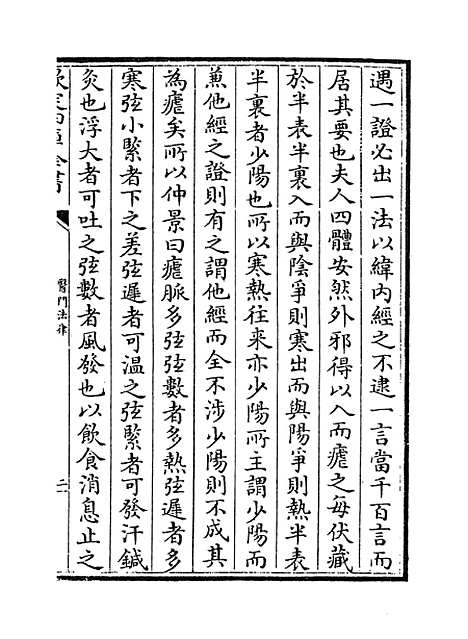 遇一證必出一法以緯内經之不逮一言當千百言而
居其要也夫人四體安然外邪得以入而瘧之每伏藏
於半表半裏入而與陰爭則寒出而與陽爭則熱半表
半裏者少陽也所以寒熱往來亦少陽所主謂少陽而
兼他經之證則有之謂他經而全不涉少陽則不成其
為瘧矣所以仲景曰瘧脈多弦弦數者多熱弦遲者多
寒弦小緊者下之差弦遲者可温之弦緊者可發汗鍼
灸也浮大者可吐之弦數者風發也以飲食消息止之
欽定四庫全書
醫門法律
二